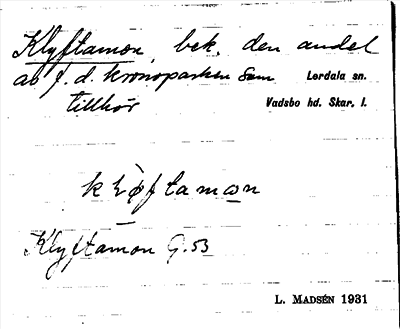 Klyftamon, bek. den andel
av f. d. kronoparken som Lerdala sn.
tillhör Vadsbo hd. Skar. l.
klyftamon
Klyftamon G. 53
L. MADSÉN 1931